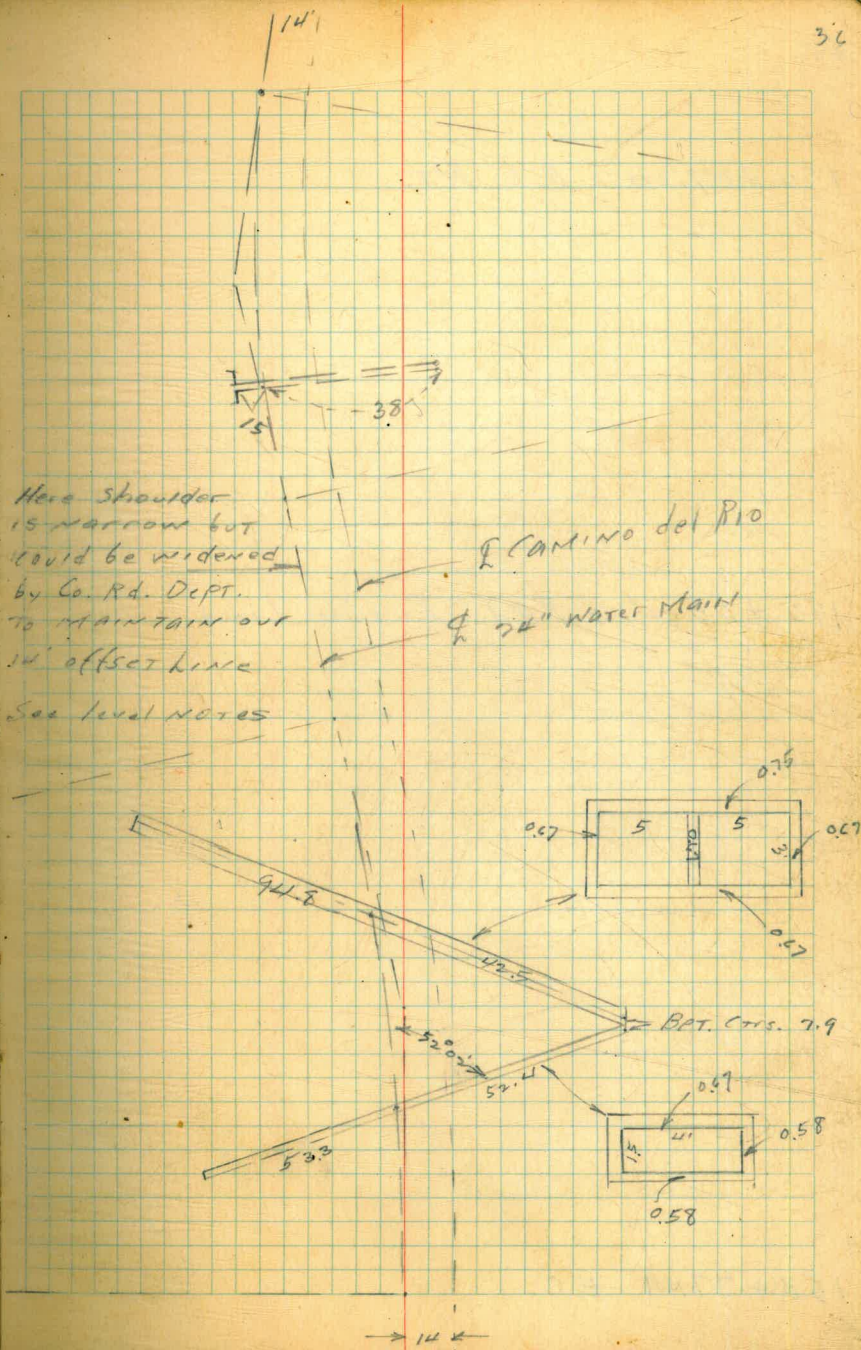 14'
36
15
38
Here shoulder
is narrow but
could be widened
by Co. Rd. Dept.
to maintain our
14' offset Line
See level notes
℄ CAMINO del Rio
℄ 24" Water Main
0.75
0.67
5
5
3
0.67
0.67
94.8
42.5
Bet. Ctrs. 7.9
52°02'
52.4
53.3
0.67
4'
1.5
0.58
0.58
14